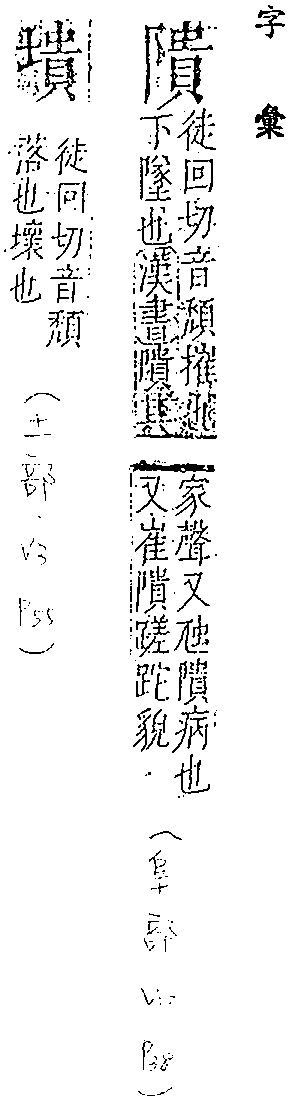 字彙
隤
徒回切音頹摧也
下墜也漢書隤其
家聲又虺隤病也
又崔隤蹉跎貌.
(阜部 P38)
墤
徒回切音頹
落也壞也
(土部.V3 P55)